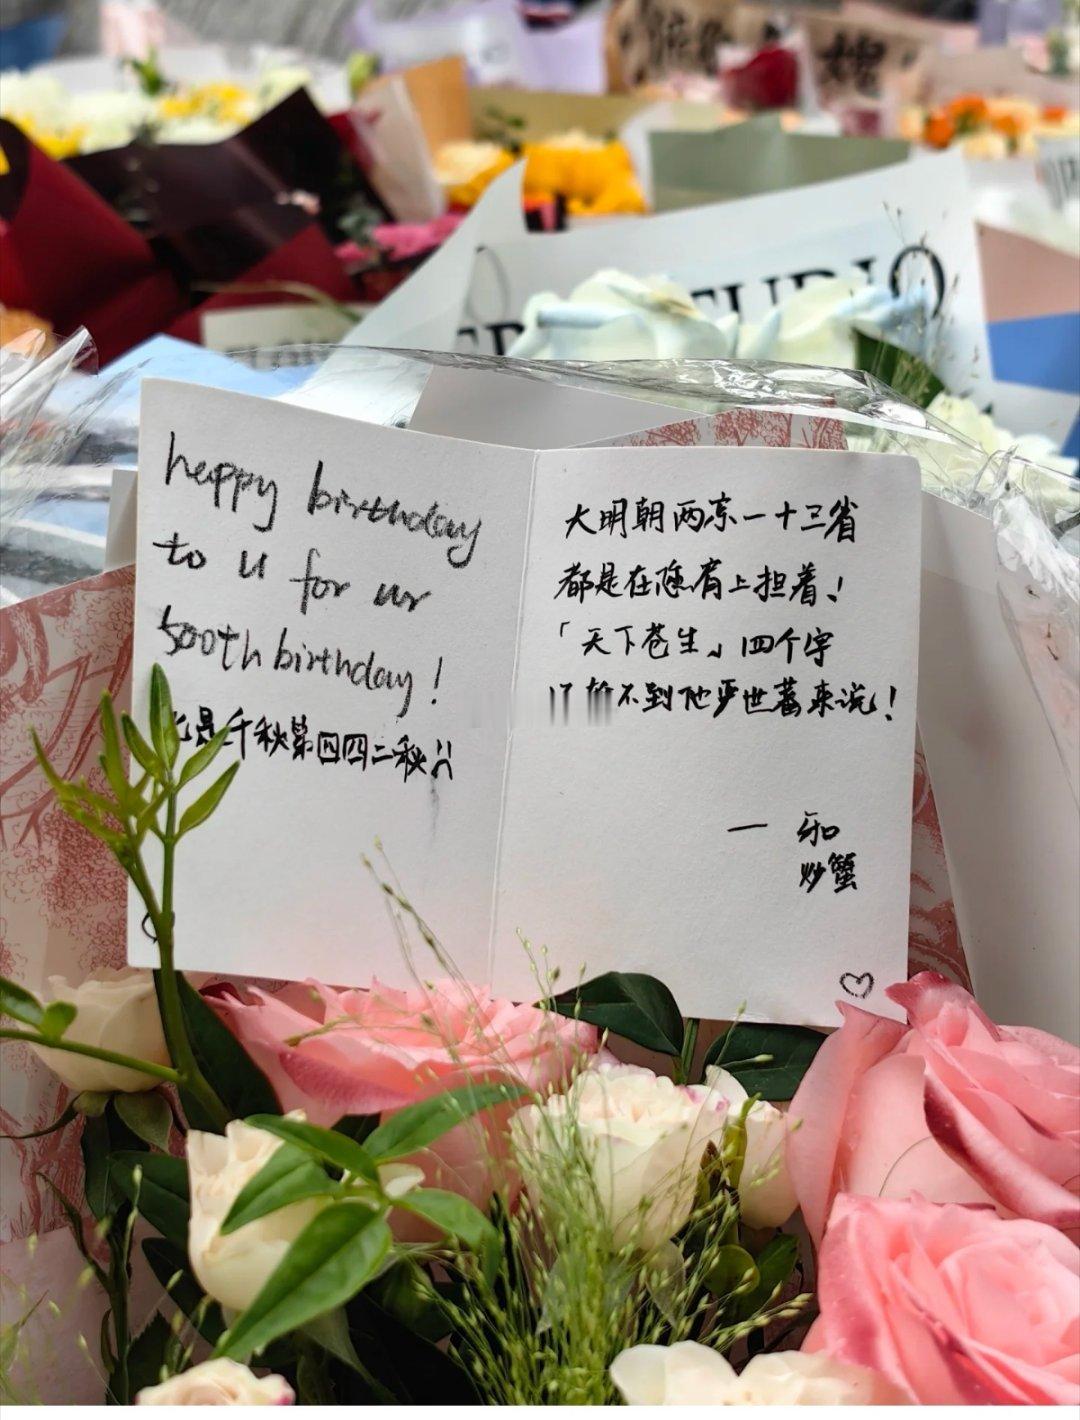 happy birthday
to u for ur
500th birthday!
是千秋第四四二秋
大明朝两京一十三省
都是在肩上担着!
「天下苍生」四个字
不到他严世蕃来说!
— 和
炒蟹
TUDIO